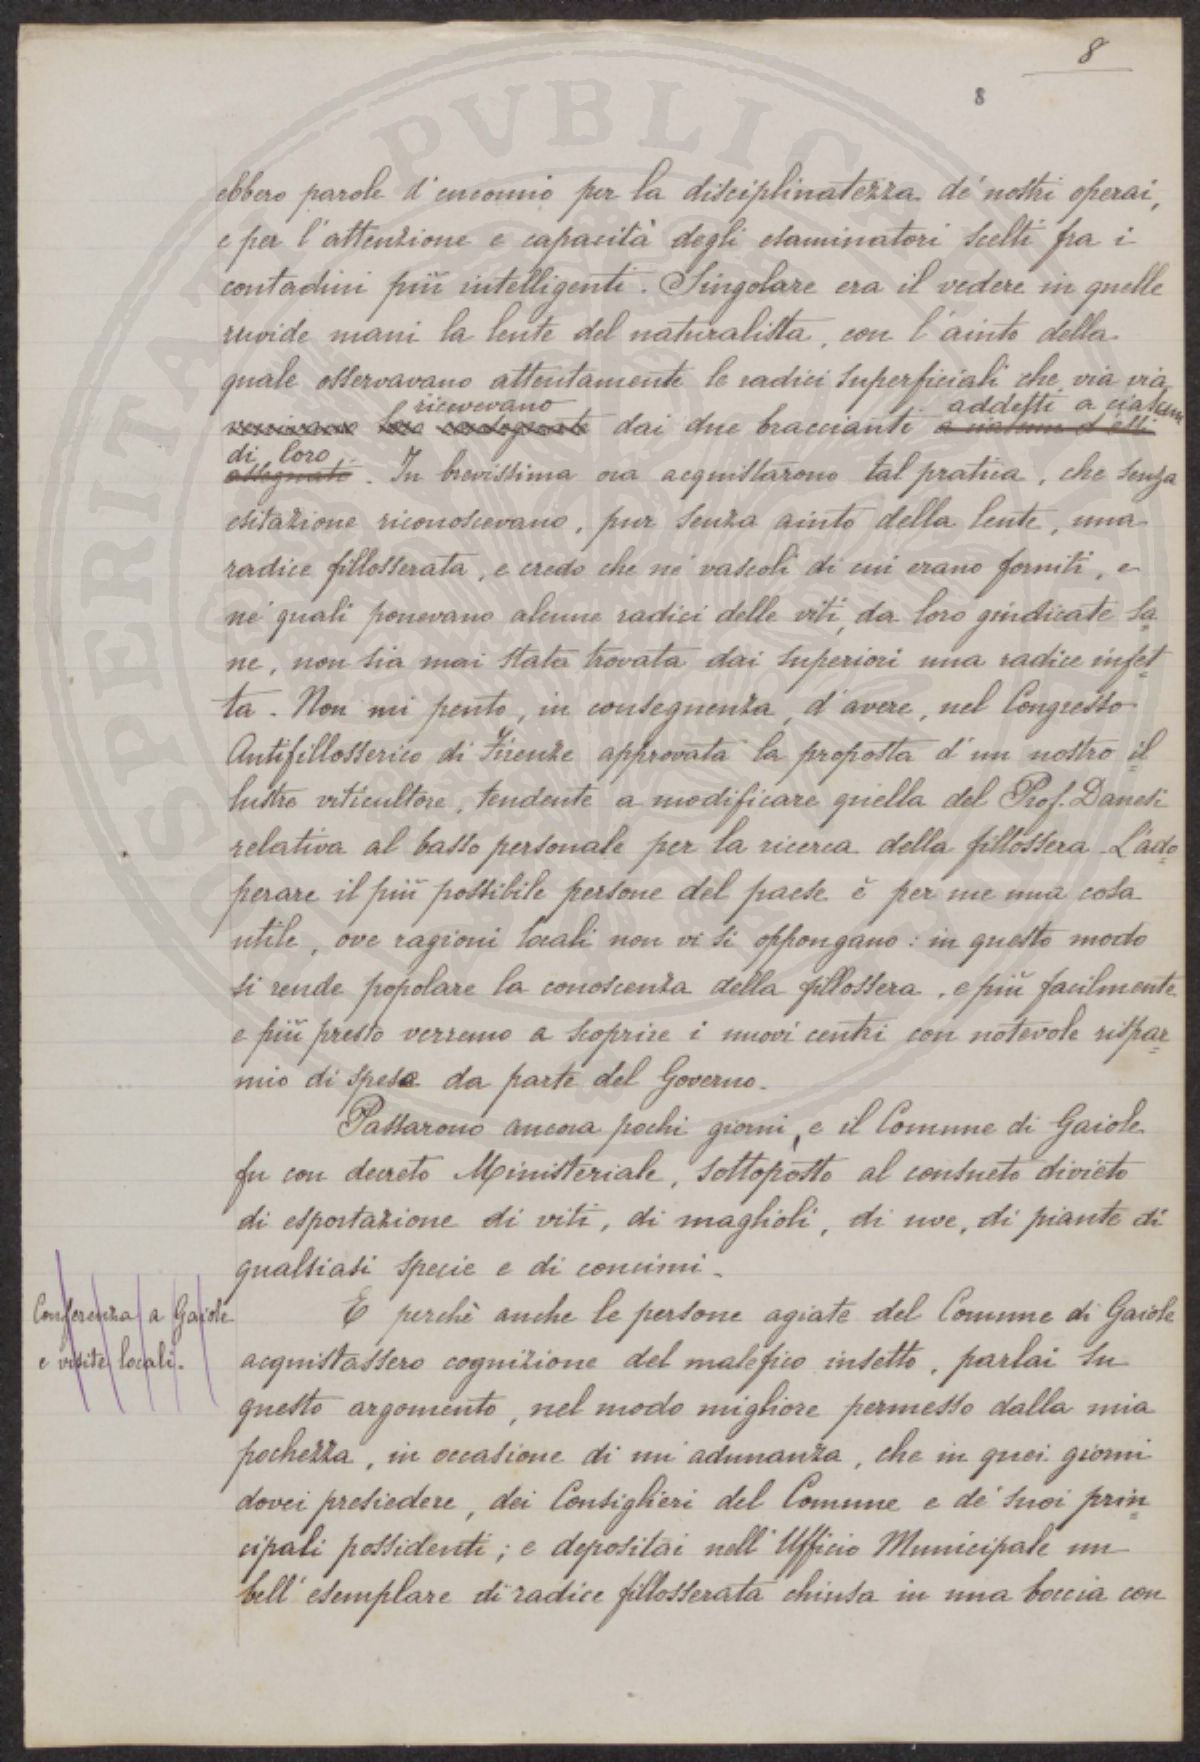 8
8
ebbero parole d'encomio per la disciplinatezza de' nostri operai,
e per l'attenzione e capacità degli esaminatori scelti fra i
contadini più intelligenti. Singolare era il vedere in quelle
ruvide mani la lente del naturalista, con l'aiuto della
quale osservavano attentamente le radici superficiali che via via
ricevevano addetti a ciascun
venivano loro consegnate dai due braccianti a ciascun d'essi
di loro
assegnati. In brevissima ora acquistarono tal pratica, che senza
esitazione riconoscevano, pur senza aiuto della lente, una
radice fillosserata, e credo che ne' vascoli di cui erano forniti, e
ne' quali ponevano alcune radici delle viti, da loro giudicate sa
ne, non sia mai stata trovata dai superiori una radice infet
ta. Non mi pento, in conseguenza, d'avere, nel Congresso
Antifillosserico di Firenze approvata la proposta d'un nostro il=
lustre viticultore, tendente a modificare quella del Prof. Danesi
relativa al basso personale per la ricerca della fillossera. L'ado=
perare il più possibile persone del paese è per me una cosa
utile, ove ragioni locali non vi si oppongano: in questo modo
si rende popolare la conoscenza della fillossera, e più facilmente
e più presto verremo a scoprire i nuovi centri con notevole rispar=
mio di spese da parte del Governo.
Passarono ancora pochi giorni, e il Comune di Gaiole
fu con decreto Ministeriale, sottoposto al consueto divieto
di esportazione di viti, di maglioli, di uve, di piante di
qualsiasi specie e di concimi.
Conferenza a Gaiole
e visite locali.
E perchè anche le persone agiate del Comune di Gaiole
acquistassero cognizione del malefico insetto, parlai su
questo argomento, nel modo migliore permesso dalla mia
pochezza, in occasione di un'adunanza, che in quei giorni
dovei presiedere, dei Consiglieri del Comune e de' suoi prin=
cipali possidenti; e depositai nell'Ufficio Municipale un
bell'esemplare di radice fillosserata chiusa in una boccia con